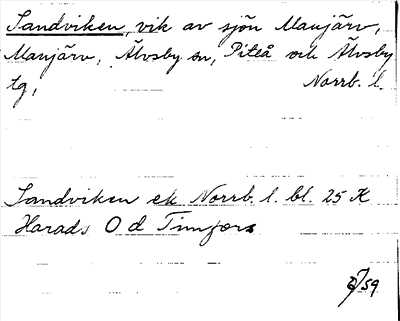 Sandviken, vik av sjön Manjärv,
Manjärv, Älvsby sn, Piteå och Älvsby
tg, Norrb. l.
Sandviken ek Norrb. l. bl. 25 K
Harads O d Timfors
/59